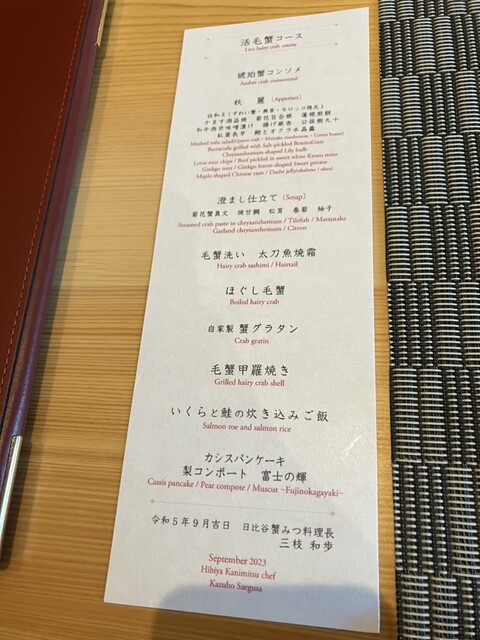 活毛蟹コース
Live hairy crab course
琥珀蟹コンソメ
Amber crab consommé
秋 麗 (Appetizer)
白和え(ずわい蟹・舞茸・モロッコ隠元)
かます酒盗焼 菊花百合根 蓮根煎餅
和牛西京味噌漬け 揚げ銀杏 公孫樹丸十
紅葉長芋 鮑とオクラ水晶羹
Mashed tofu salad(Queen crab・Maitake mushroom・Green beans)
Barracuda grilled with Salt-pickled BonitoGuts
Chrysanthemum-shaped Lily bulb
Lotus root chips / Beef pickled in sweet white Kyoto miso
Ginkgo nuts / Ginkgo leaves-shaped Sweet potato
Maple-shaped Chinese yam / Dashi jelly(abalone / okra)
澄まし仕立て (Soup)
菊花蟹真丈 焼甘鯛 松茸 春菊 柚子
Steamed crab paste in chrysanthemum / Tilefish / Matsutake
Garland chrysanthemum / Citron
毛蟹洗い 太刀魚焼霜
Hairy crab sashimi / Hairtail
ほぐし毛蟹
Boiled hairy crab
自家製 蟹グラタン
Crab gratin
毛蟹甲羅焼き
Grilled hairy crab shell
いくらと鮭の炊き込みご飯
Salmon roe and salmon rice
カシスパンケーキ
梨コンポート 富士の輝
Cassis pancake / Pear compote / Muscut ~Fujinokagayaki~
令和5年9月吉日 日比谷蟹みつ料理長
三枝 和歩
September 2023
Hibiya Kanimitsu chef
Kazuho Saegusa